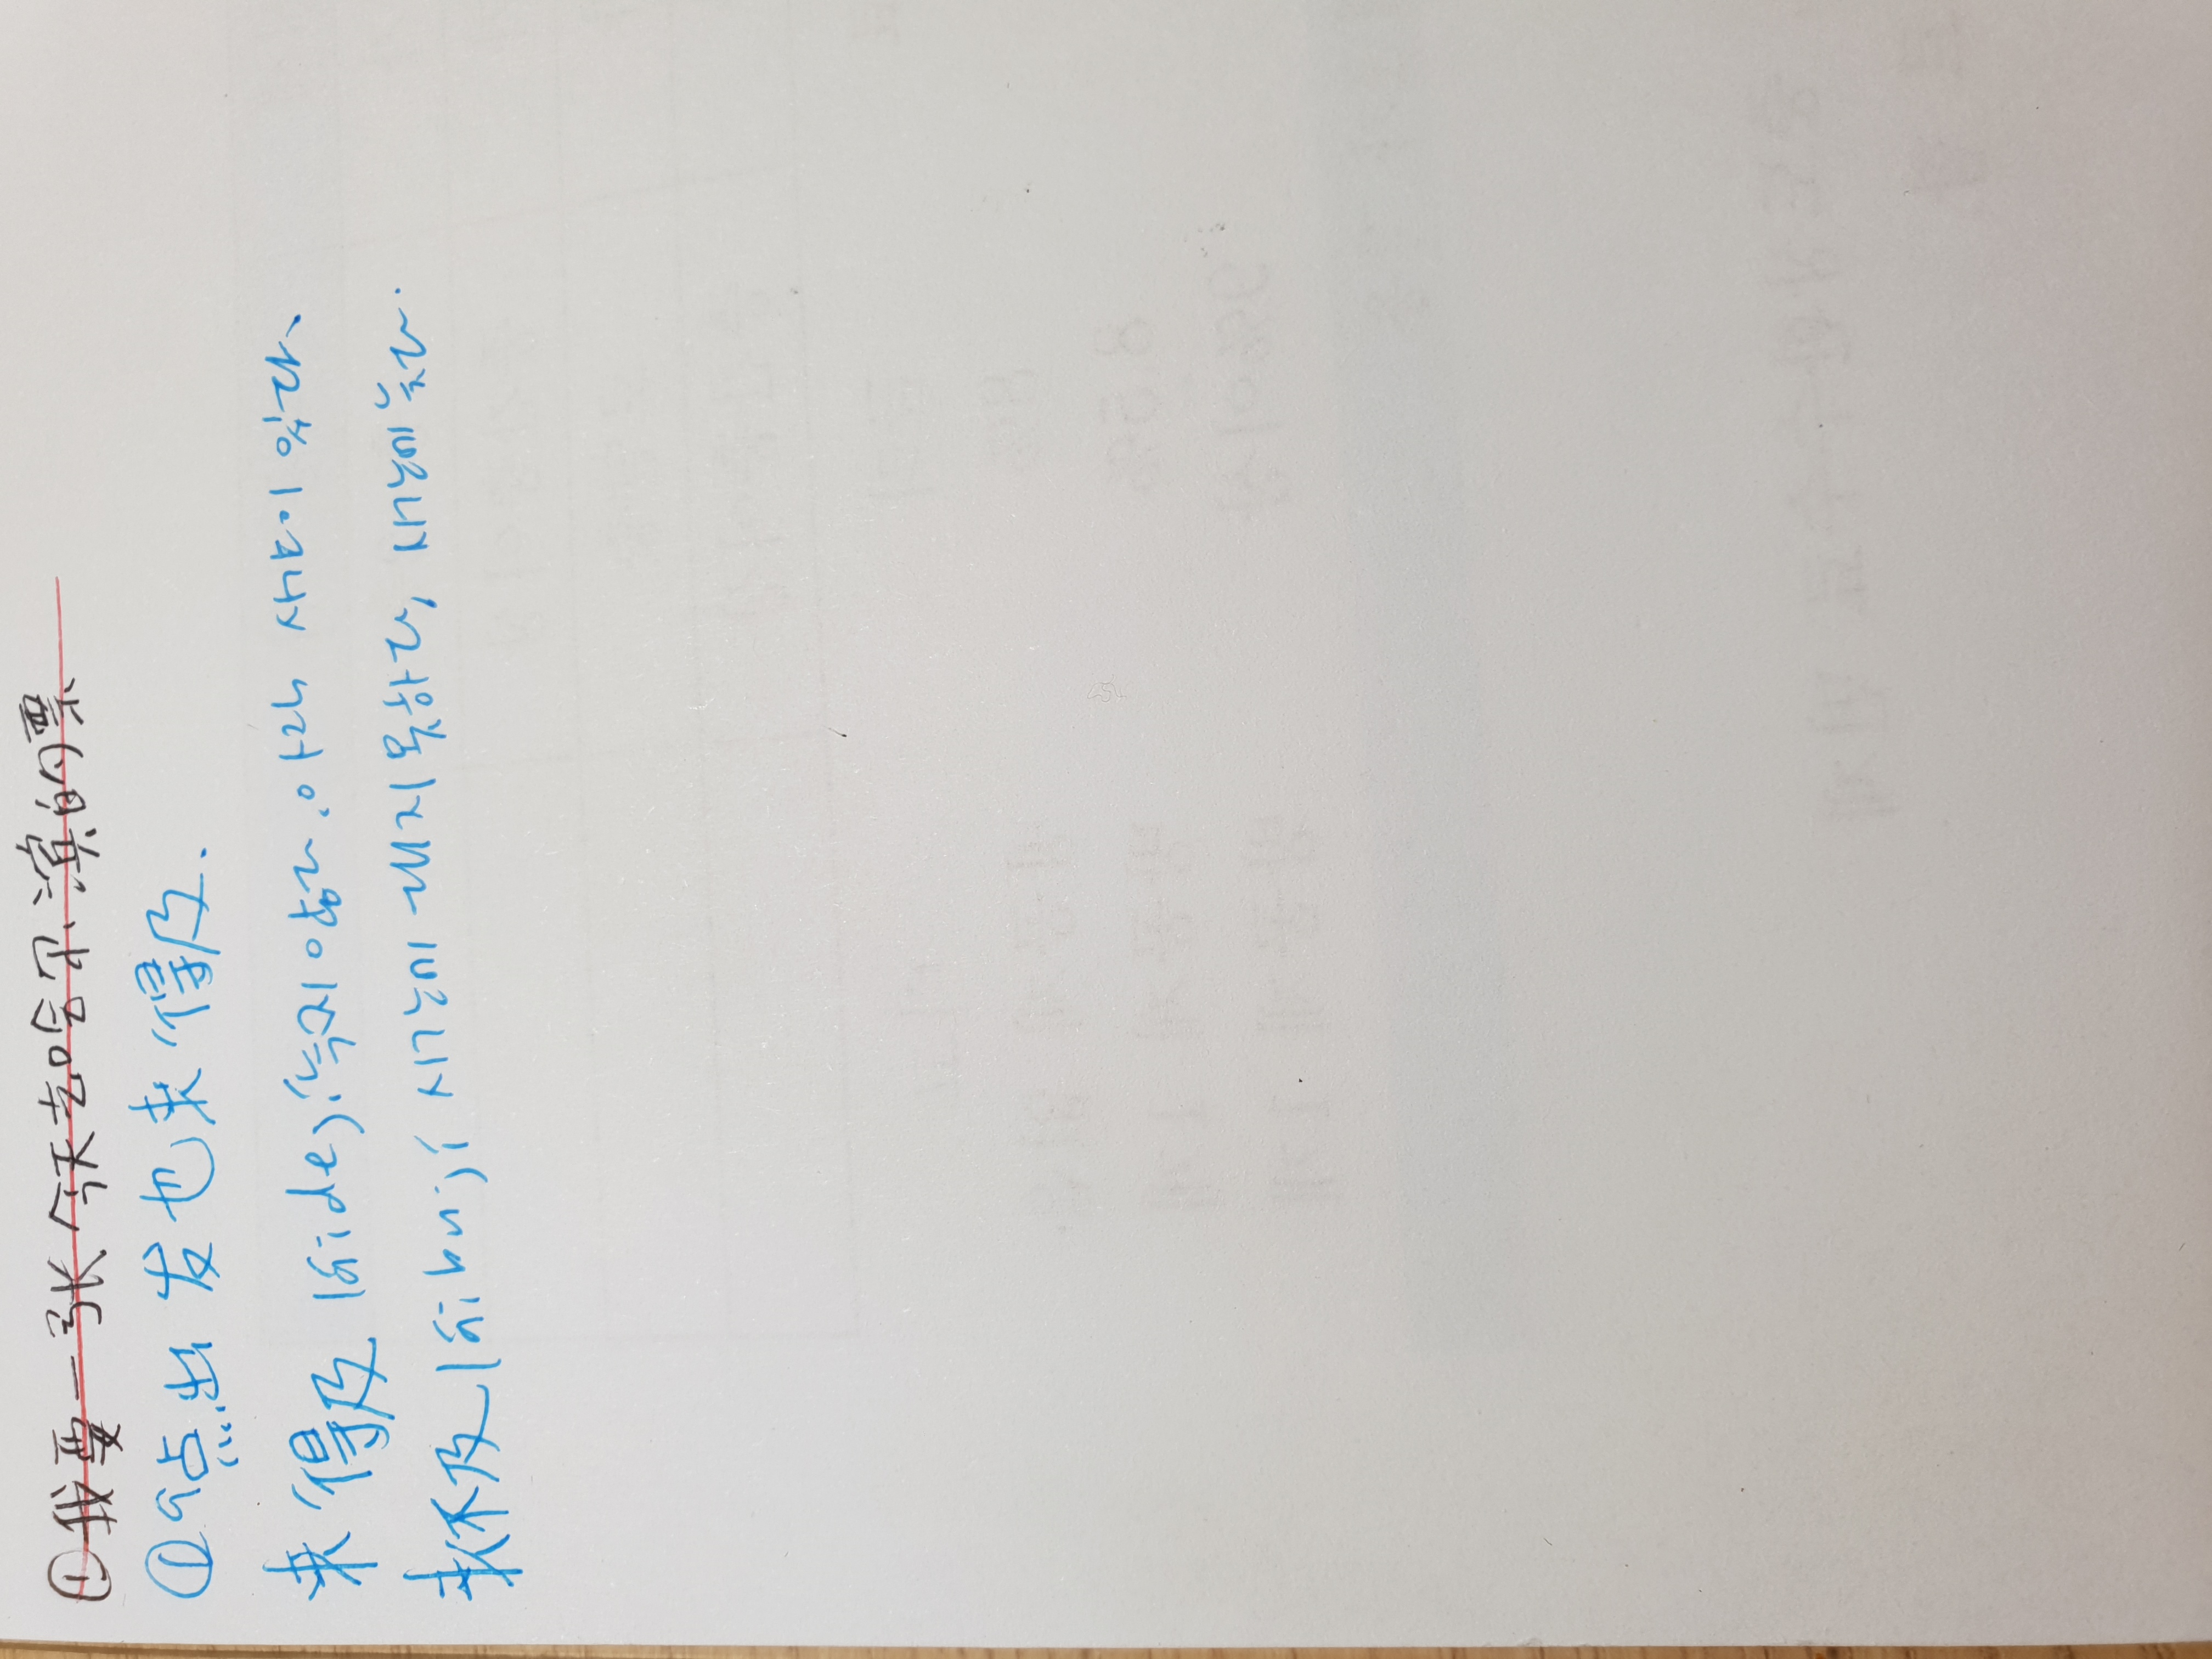 ①我要一张 今天去哈尔滨的票
①9点出发也来得及.
来得及 láide jí 늦지 않다. 아직 시간이 있다.
来不及 láibují 시간에 대지 못하다, 시간에 늦다.